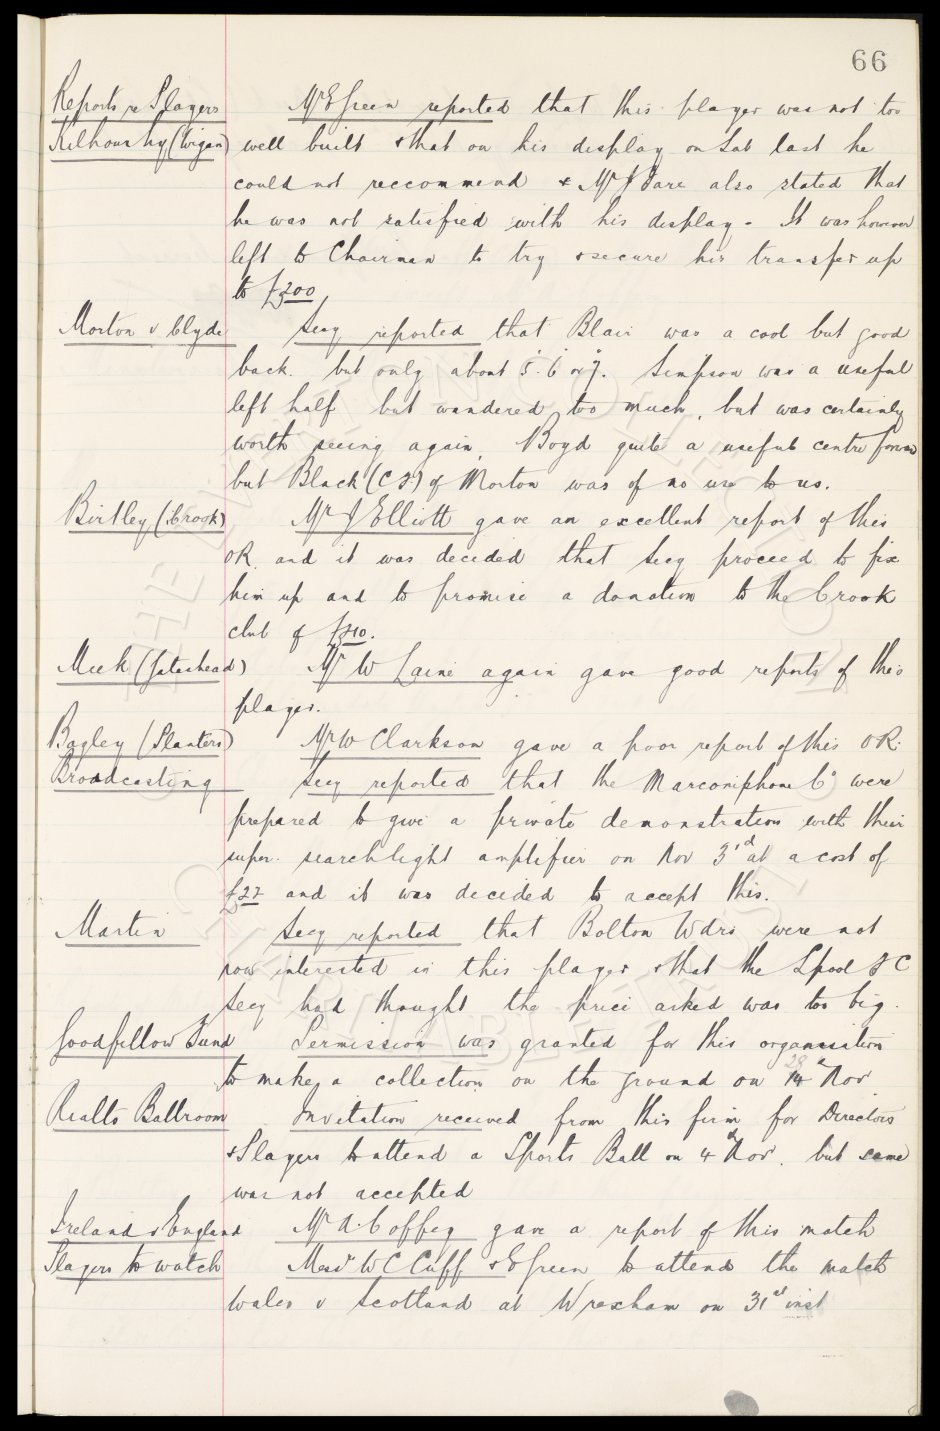 66
Reports re Players Mr E Green reported that this player was not too
Kilhourhy (Wigan) well built & that on his display on Sat last he
could not reccommend & Mr J Fare also stated that
he was not satisfied with his display - It was however
left to Chairman to try & secure his transfer up
to £200
Morton v Clyde Secy reported that Blair was a cool but good
back. but only about 5' 6" or 7". Simpson was a useful
left half but wandered too much, but was certainly
worth seeing again, Boyd quite a useful centre forward
but Black (C F) of Morton was of no use to us.
Birtley (Crook) Mr J Elliott gave an excellent report of this
OR. and it was decided that Secy proceed to fix
him up and to promise a donation to the Crook
club of £10.
Meek (Gateshead) Mr W Laine again gave good reports of this
player.
Bagley (Planters) Mr W Clarkson gave a poor report of this OR.
Broadcasting Secy reported that the Marconiphone Co were
prepared to give a private demonstration with their
super searchlight amplifier on Nov 3rd at a cost of
£27 and it was decided to accept this.
Martin Secy reported that Bolton Wdrs were not
now interested in this player & that the Lpool F C
Secy had thought the price asked was too big.
Goodfellow Fund Permission was granted for this organisation
to make a collection on the ground on 28 Nov
Rialto Ballroom Invitation received from this firm for Directors
& Players to attend a Sports Ball on 4th Nov. but same
was not accepted
Ireland v England Mr A. Coffey gave a report of this match
Players to watch Messrs W C Cuff & E Green to attend the match
Wales v Scotland at Wrexham on 31st inst
THE EVERTON COLLECTION
CHARITABLE TRUST